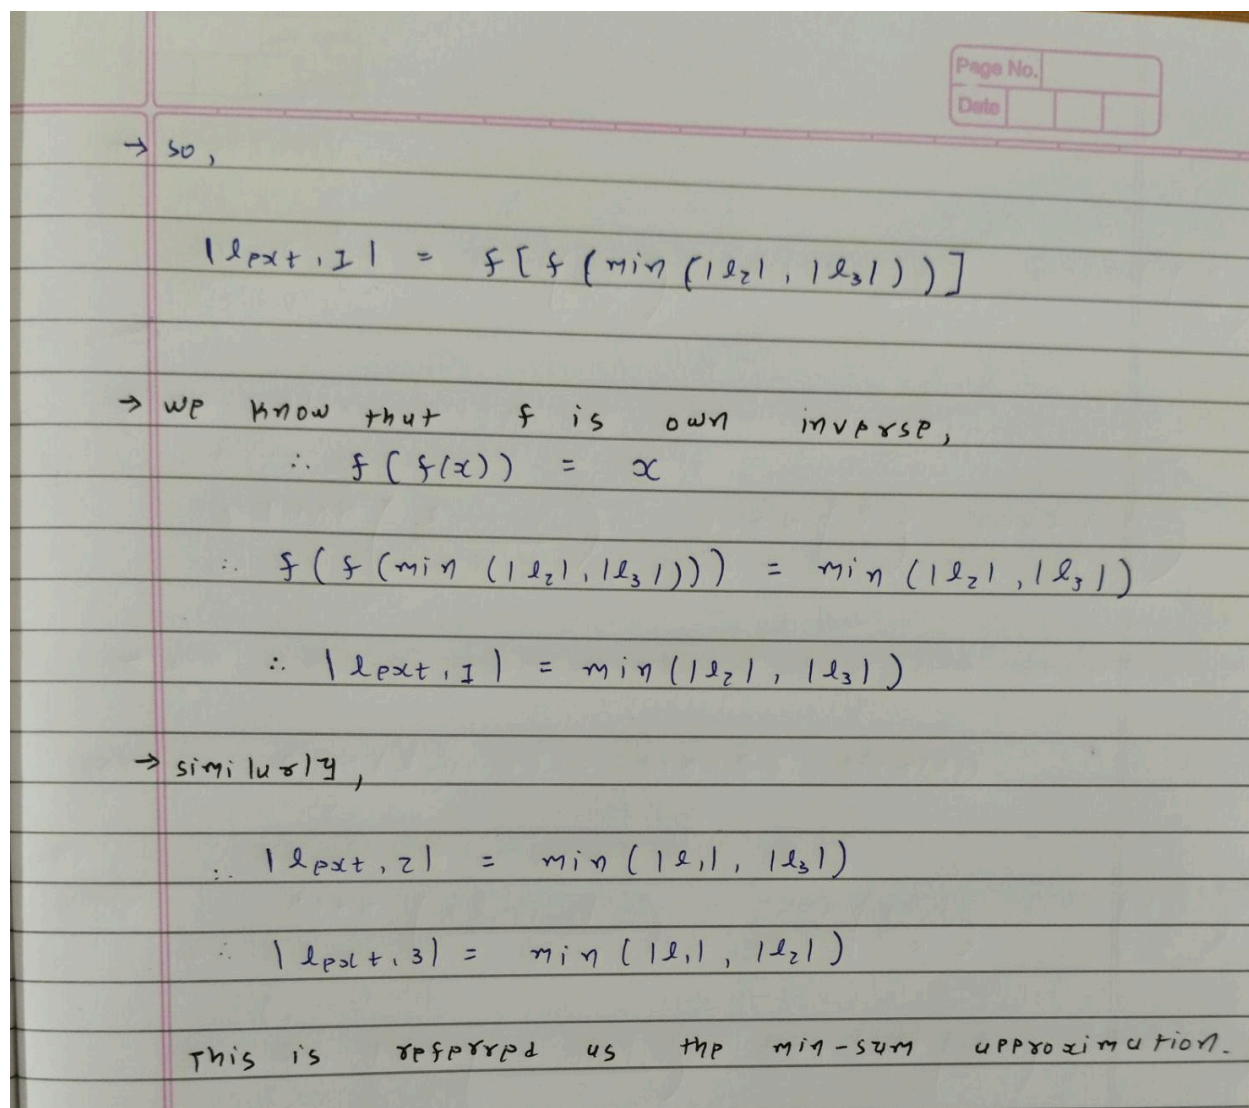 Page No.
Date
→ so,
|lext,1| = f[f(min(|l₂|, |l₃|))]
→ we know that f is own inverse,
∴ f(f(x)) = x
∴ f(f(min(|l₂|, |l₃|))) = min(|l₂|, |l₃|)
∴ |lext,1| = min(|l₂|, |l₃|)
→ similarly,
∴ |lext,2| = min(|l₁|, |l₃|)
∴ |lext,3| = min(|l₁|, |l₂|)
This is referred as the min-sum approximation.